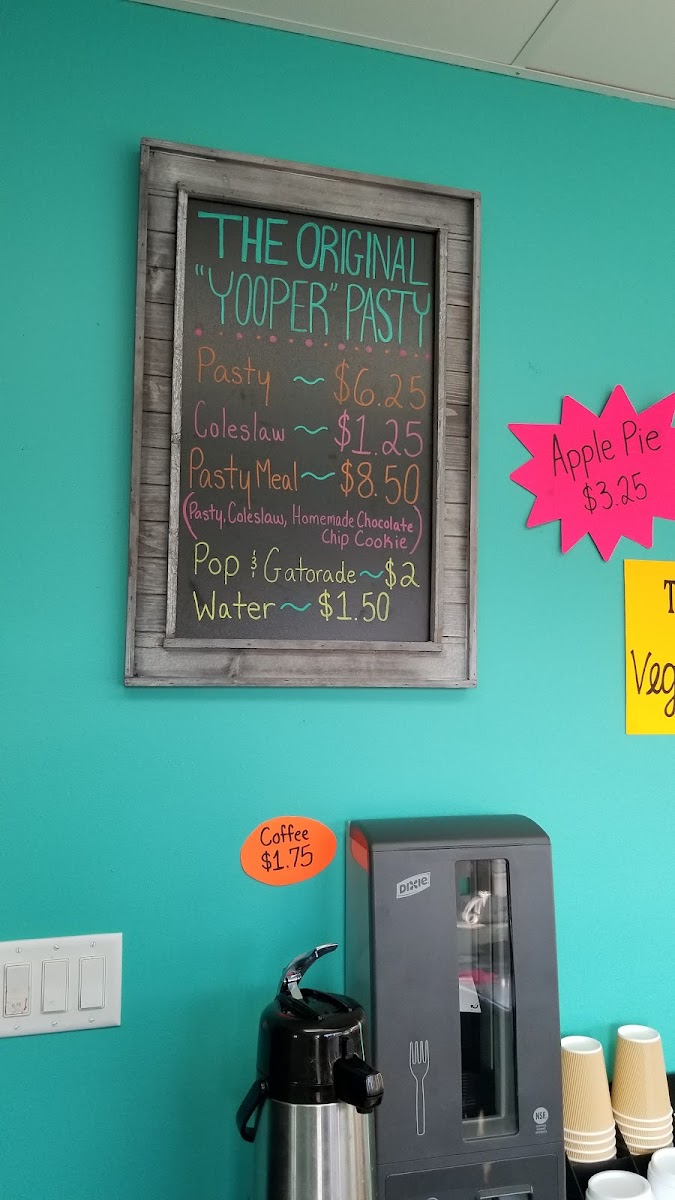 THE ORIGINAL
"YOOPER" PASTY
Pasty ~ $6.25
Coleslaw ~ $1.25
Pasty Meal ~ $8.50
(Pasty, Coleslaw, Homemade Chocolate
Chip Cookie)
Pop & Gatorade ~ $2
Water ~ $1.50
Apple Pie
$3.25
T
Veg
Coffee
$1.75
DIXIE
NSF